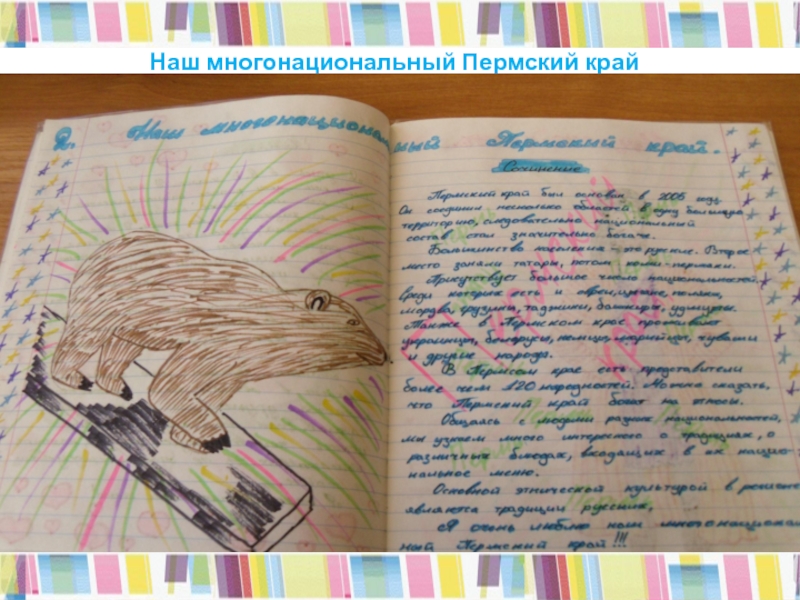 Наш многонациональный Пермский край
2. Наш многонациональный Пермский край.
Сочинение
Пермский край был основан в 2005 году.
Он соединил несколько областей в одну большую
территорию, следовательно национальный
состав стал значительно богаче.
Большинство населения - это русские. Второе
место заняли татары, потом коми-пермяки.
Присутствует большое число национальностей
среди которых есть и евреи,
мордва, грузины, таджики, башкиры, удмурты.
Также в Пермском крае проживают
украинцы, белорусы, немцы, марийцы, чуваши
и другие народа.
В Пермсом крае есть представители
более чем 120 народностей. Можно сказать,
что Пермский край богат на этносы.
Общаясь с людьми разных национальностей,
мы узнаем много интересного о традициях, о
различных блюдах, входящих в их нацио-
нальное меню.
Основной этнической культурой в регионе
являются традиции русских,
Я очень люблю наш многонационал
ный Пермский край!!!
Пермский край
Пермь